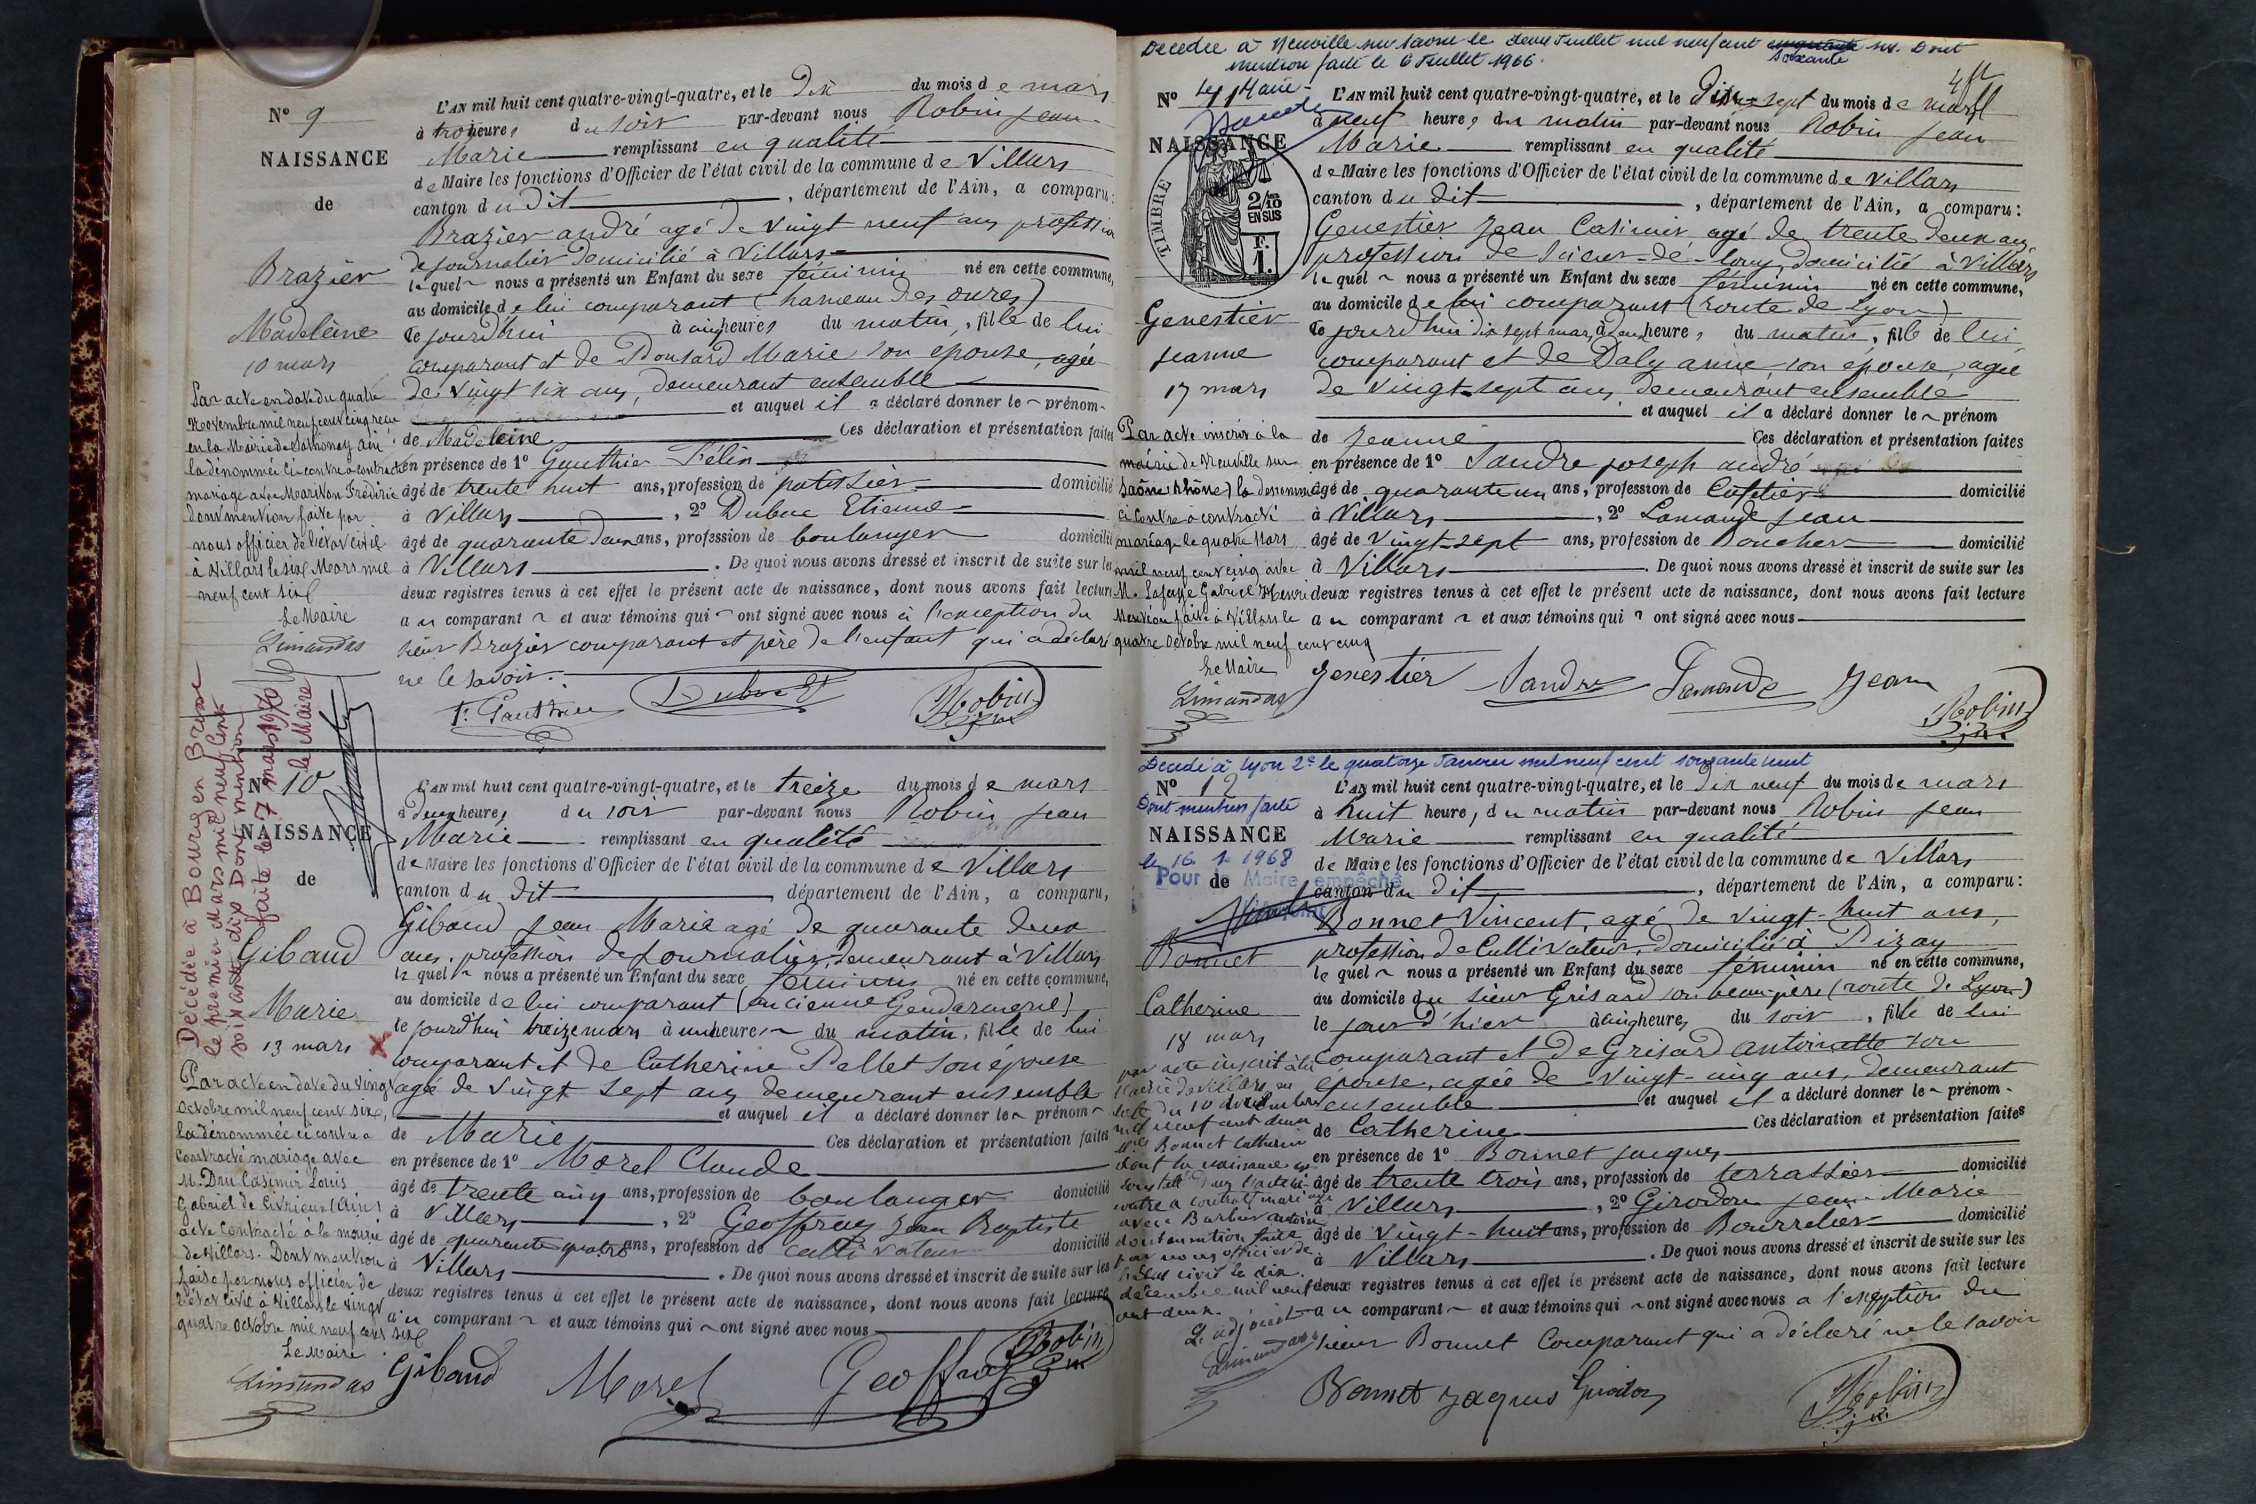 N° 9
NAISSANCE
de
Brazier
Madeleine
10 mars
Par acte en date du quatre
Novembre mil neuf cent cinq reçu
en la Mairie de Sathonay Ain
la dénommée ci contre a contracté
mariage avec Frédéric
dont mention faite par
nous officier de l'état civil
à Villars le six Mars mil
neuf cent six
Le Maire
Limandas
L'AN mil huit cent quatre-vingt-quatre, et le Dix du mois de mars
à trois heures du soir par-devant nous Robin Jean
Marie remplissant en qualité
de Maire les fonctions d'Officier de l'état civil de la commune de Villars
canton du dit, département de l'Ain, a comparu:
Brazier andré agé de vingt neuf ans profession
de journalier domicilié à Villars
lequel nous a présenté un Enfant du sexe féminin né en cette commune,
au domicile de lui comparant (hameau des oures)
ce jourd'hui à cinq heures du matin, fille de lui
comparant et de Marie son epouse, agée
de vingt six ans, demeurant ensemble
et auquel il a déclaré donner le prénom
de Madeleine Ces déclaration et présentation faites
en présence de 1° Gauthier Félix
âgé de trente huit ans, profession de patissier domicilié
à Villars, 2° Dubuc Etienne
âgé de quarante deux ans, profession de boulanger domicilié
à Villars. De quoi nous avons dressé et inscrit de suite sur les
deux registres tenus à cet effet le présent acte de naissance, dont nous avons fait lecture
au comparant et aux témoins qui ont signé avec nous à l'exception du
sieur Brazier comparant et père de l'enfant qui a déclaré
ne le savoir.
F. Gauthier Dubuc Et Robin
Décédée à Bourg en Bresse
le premier Mars mil neuf cent
soixante dix Dont mention
faite le 7 mars 1970
le Maire
N° 10
NAISSANCE
de
Gibaud
Marie
13 mars
Par acte en date du vingt
Octobre mil neuf cent six,
la dénommée ci contre a
contracté mariage avec
M. Dru Casimir Louis
Gabriel de Civrieux (Ain)
acte contracté à la mairie
de Villars. Dont mention
faite par nous officier de
l'état civil à Villars le vingt
quatre Octobre mil neuf cent six
Le Maire
Limandas
L'AN mil huit cent quatre-vingt-quatre, et le treize du mois de mars
à deux heures du soir par-devant nous Robin Jean
Marie remplissant en qualité
de Maire les fonctions d'Officier de l'état civil de la commune de Villars
canton du dit, département de l'Ain, a comparu,
Gibaud Jean Marie agé de quarante deux
ans, profession de Journalier, demeurant à Villars
lequel nous a présenté un Enfant du sexe féminin né en cette commune,
au domicile de lui comparant (ancienne Gendarmerie)
le jourd'hui treize mars à une heure du matin, fille de lui
comparant et de Catherine Pellet son épouse
agé de vingt sept ans demeurant ensemble
et auquel il a déclaré donner le prénom
de Marie Ces déclaration et présentation faites
en présence de 1° Morel Claude
âgé de trente cinq ans, profession de boulanger domicilié
à Villars, 2° Geoffray Jean Baptiste
âgé de quarante quatre ans, profession de cultivateur domicilié
à Villars. De quoi nous avons dressé et inscrit de suite sur les
deux registres tenus à cet effet le présent acte de naissance, dont nous avons fait lecture
au comparant et aux témoins qui ont signé avec nous
Gibaud Morel Geoffray Robin
Décédée à Neuville sur Saône le deux Juillet mil neuf cent cinquante six. Dont
soixante
mention faite le 6 Juillet 1966.
N° 11
Le Maire
NAISSANCE
TIMBRE
2/10
EN SUS
F.
1.
Genestier
Jeanne
17 mars
Par acte inscrit à la
mairie de Neuville sur
Saône (Rhône) la dénommée
ci contre a contracté
mariage le quatre Mars
mil neuf cent cinq avec
M. Gabriel Henri
Mention faite à Villars le
quatre Octobre mil neuf cent cinq
Le Maire
Limandas
L'AN mil huit cent quatre-vingt-quatre, et le Dix-sept du mois de mars
à neuf heures du matin par-devant nous Robin Jean
Marie remplissant en qualité
de Maire les fonctions d'Officier de l'état civil de la commune de Villars
canton du dit, département de l'Ain, a comparu:
Genestier Jean Casimir agé de trente deux ans
profession de Scieur-de-long, domicilié à Villars
lequel nous a présenté un Enfant du sexe féminin né en cette commune,
au domicile de lui comparant (route de Lyon)
ce jourd'hui dix sept mars, à deux heures du matin, fille de lui
comparant et de Daly anne, son épouse, agée
de vingt-sept ans, demeurant ensemble
et auquel il a déclaré donner le prénom
de Jeanne Ces déclaration et présentation faites
en présence de 1° Sandre joseph andré
âgé de quarante un ans, profession de Cafetier domicilié
à Villars, 2° Lamande Jean
âgé de Vingt-sept ans, profession de Boucher domicilié
à Villars. De quoi nous avons dressé et inscrit de suite sur les
deux registres tenus à cet effet le présent acte de naissance, dont nous avons fait lecture
au comparant et aux témoins qui ont signé avec nous
genestier Sandre Lamande Jean
Robin
Décédé à Lyon 2e le quatorze Janvier mil neuf cent soixante huit
N° 12
Dont mention faite
NAISSANCE
le 16 1 1968
Pour le Maire empêché
de
Bonnet
Catherine
18 mars
par acte inscrit à la
Mairie de Villars en
date du 10 décembre
mil neuf cent deux
Mlle Bonnet Catherine
dont la naissance est
constatée
contre a contracté mariage
avec Barbier antoine
dont mention faite
par nous officier de
l'état civil le dix
décembre mil neuf
cent deux.
L'adjoint
Limandas
L'AN mil huit cent quatre-vingt-quatre, et le Dix neuf du mois de mars
à huit heures du matin par-devant nous Robin Jean
Marie remplissant en qualité
de Maire les fonctions d'Officier de l'état civil de la commune de Villars
canton du dit, département de l'Ain, a comparu:
Bonnet Vincent, agé de vingt-huit ans,
profession de Cultivateur, domicilié à Pizay
lequel nous a présenté un Enfant du sexe féminin né en cette commune,
au domicile du sieur Grisard son beau-père (route de Lyon)
le jour d'hier à cinq heures du soir, fille de lui
comparant et de Grisard antoinette son
épouse, agée de vingt-cinq ans, demeurant
ensemble et auquel il a déclaré donner le prénom
de Catherine Ces déclaration et présentation faites
en présence de 1° Bonnet jacques
âgé de trente trois ans, profession de terrassier domicilié
à Villars, 2° Girodon jean-Marie
âgé de vingt-huit ans, profession de Bourrelier domicilié
à Villars. De quoi nous avons dressé et inscrit de suite sur les
deux registres tenus à cet effet le présent acte de naissance, dont nous avons fait lecture
au comparant et aux témoins qui ont signé avec nous a l'exception du
sieur Bonnet Comparant qui a déclaré ne le savoir
Bonnet jaques Girodon Robin